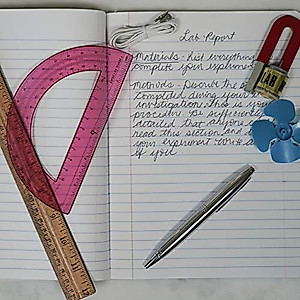 Lab Report
Materials - List everything
complete your experiment
Methods - Describe the
completed during your
investigation this is your
procedure. Be sufficiently
detailed that anyone
read this section and
your experiment
if you
LAB